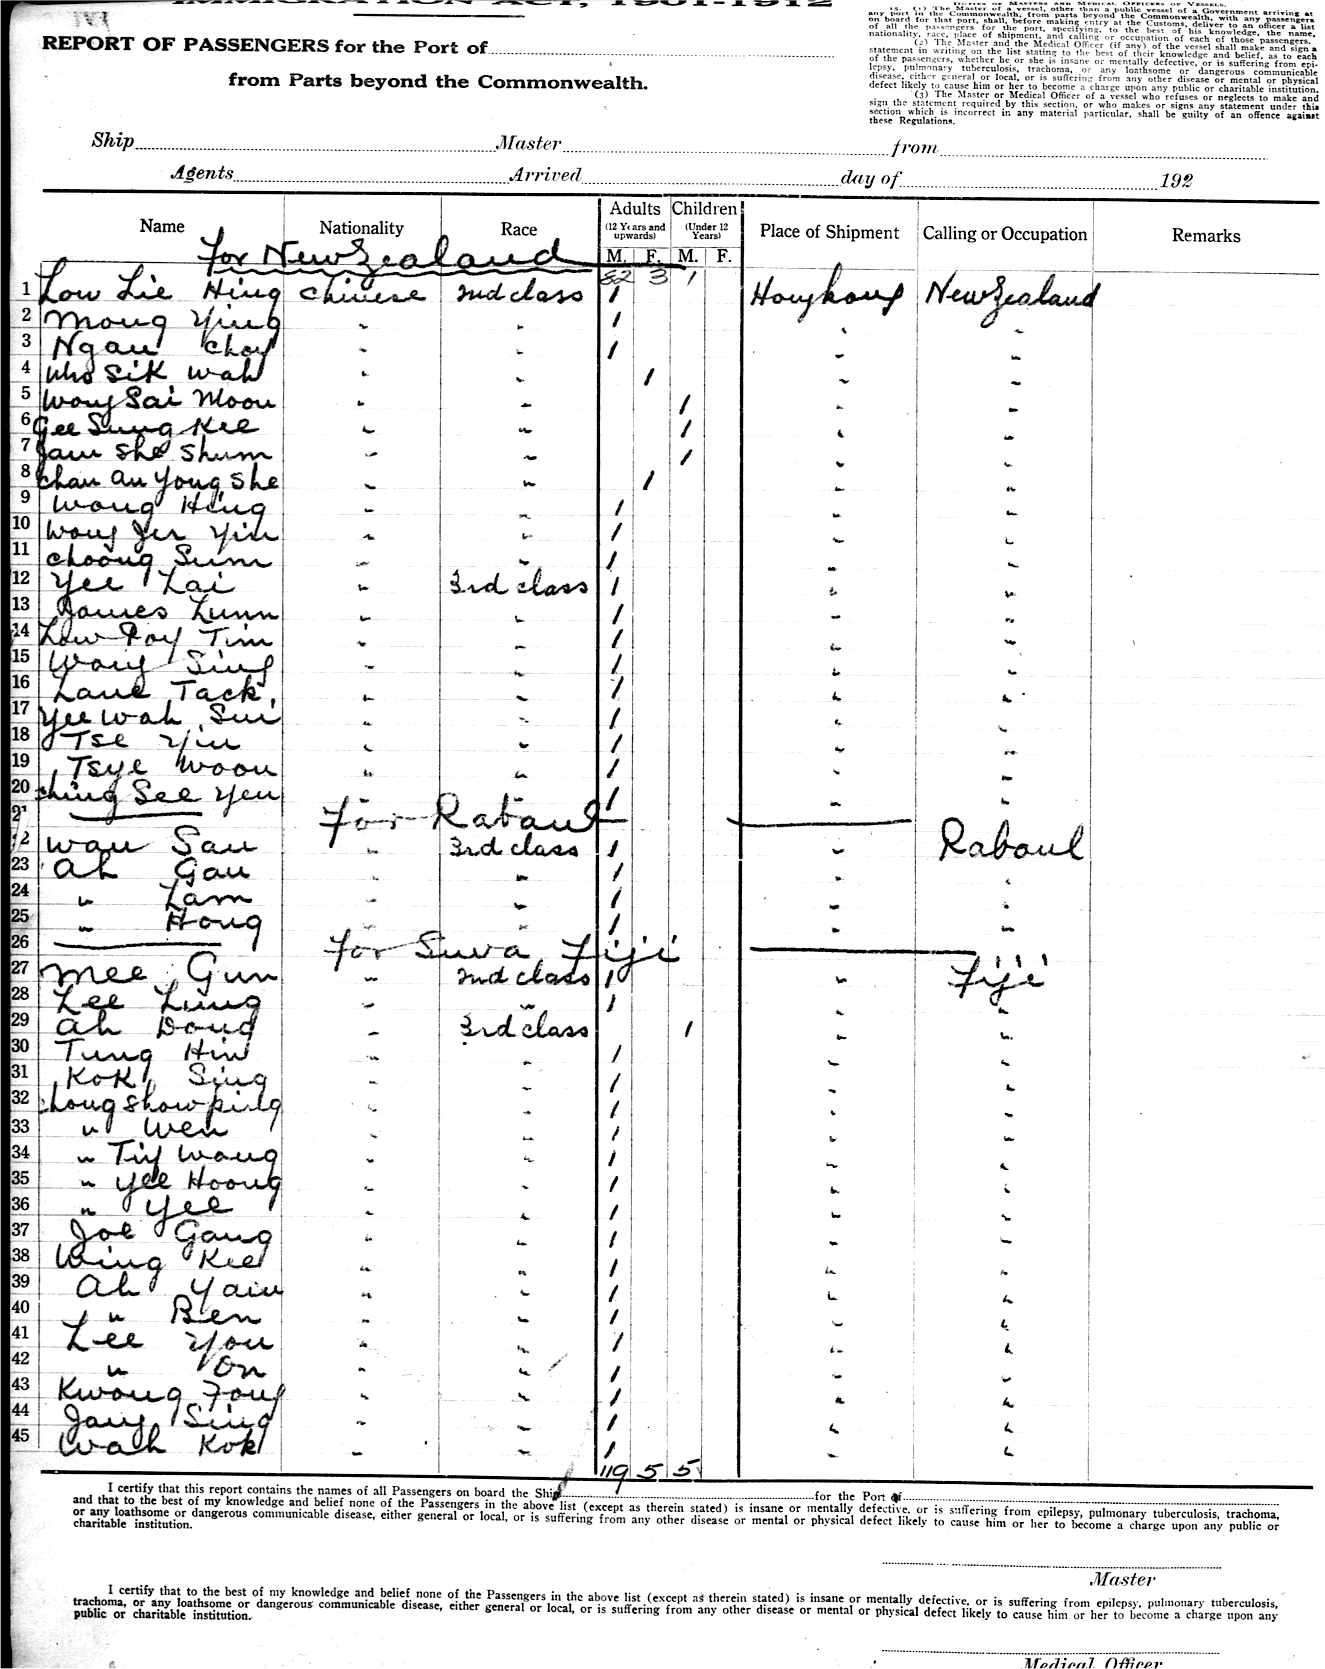 IMMIGRATION ACT, 1901-1912
REPORT OF PASSENGERS for the Port of
from Parts beyond the Commonwealth.
DUTIES OF MASTERS AND MEDICAL OFFICERS OF VESSELS.
15. (1) The Master of a vessel, other than a public vessel of a Government arriving at
any port in the Commonwealth, from parts beyond the Commonwealth, with any passengers
on board for that port, shall, before making entry at the Customs, deliver to an officer a list
of all the passengers for the port, specifying, to the best of his knowledge, the name,
nationality, race, place of shipment, and calling or occupation of each of those passengers.
(2) The Master and the Medical Officer (if any) of the vessel shall make and sign a
statement in writing on the list stating to the best of their knowledge and belief, as to each
of the passengers, whether he or she is insane or mentally defective, or is suffering from epi-
lepsy, pulmonary tuberculosis, trachoma, or any loathsome or dangerous communicable
disease, either general or local, or is suffering from any other disease or mental or physical
defect likely to cause him or her to become a charge upon any public or charitable institution.
(3) The Master or Medical Officer of a vessel who refuses or neglects to make and
sign the statement required by this section, or who makes or signs any statement under this
section which is incorrect in any material particular, shall be guilty of an offence against
these Regulations.
Ship Master from
Agents Arrived day of 192
Name Nationality Race Adults (12 Years and upwards) M. F. Children (Under 12 Years) M. F. Place of Shipment Calling or Occupation Remarks
For New Zealand
82 3 1
1 Low Lie Hing Chinese 2nd class 1 Hongkong New Zealand
2 Mong Ying " " 1 " "
3 Ngau Choy " " 1 " "
4 Who Sik Wah " " 1 " "
5 Wong Sai Moon " " 1 " "
6 Gee Sung Kee " " 1 " "
7 Jam She Shum " " 1 " "
8 Chan Au Yong She " " 1 " "
9 Wong Hing " " 1 " "
10 Wong Jer Yin " " 1 " "
11 Choong Sum " " 1 " "
12 Yee Lai " 3rd class 1 " "
13 James Lunn " " 1 " "
14 Low Foy Tim " " 1 " "
15 Wong Sing " " 1 " "
16 Lane Tack " " 1 " "
17 Yee Wah Sui " " 1 " "
18 Tse Yiu " " 1 " "
19 Tsye Woon " " 1 " "
20 Ching See Yen " " 1 " "
21 For Rabaul
22 Wau Sau " 3rd class 1 " Rabaul
23 Ah Gau " " 1 " "
24 " Lam " " 1 " "
25 " Hong " " 1 " "
26 For Suva, Fiji
27 Mee Gun " 2nd class 1 " Fiji
28 Lee Ling " " 1 " "
29 Ah Doug " 3rd class 1 " "
30 Tung Him " " 1 " "
31 Kok Sing " " 1 " "
32 Chong Show ping " " 1 " "
33 " Wen " " 1 " "
34 " Tiy Wong " " 1 " "
35 " Yee Hoong " " 1 " "
36 " Yee " " 1 " "
37 Joe Gang " " 1 " "
38 Wing Kee " " 1 " "
39 Ah Yaiu " " 1 " "
40 " Ben " " 1 " "
41 Lee You " " 1 " "
42 " On " " 1 " "
43 Kwong Fong " " 1 " "
44 Jang Sing " " 1 " "
45 Wah Kok " " 1 " "
119 5 5
I certify that this report contains the names of all Passengers on board the Ship for the Port of
and that to the best of my knowledge and belief none of the Passengers in the above list (except as therein stated) is insane or mentally defective, or is suffering from epilepsy, pulmonary tuberculosis, trachoma,
or any loathsome or dangerous communicable disease, either general or local, or is suffering from any other disease or mental or physical defect likely to cause him or her to become a charge upon any public or
charitable institution.
Master
I certify that to the best of my knowledge and belief none of the Passengers in the above list (except as therein stated) is insane or mentally defective, or is suffering from epilepsy, pulmonary tuberculosis,
trachoma, or any loathsome or dangerous communicable disease, either general or local, or is suffering from any other disease or mental or physical defect likely to cause him or her to become a charge upon any
public or charitable institution.
Medical Officer